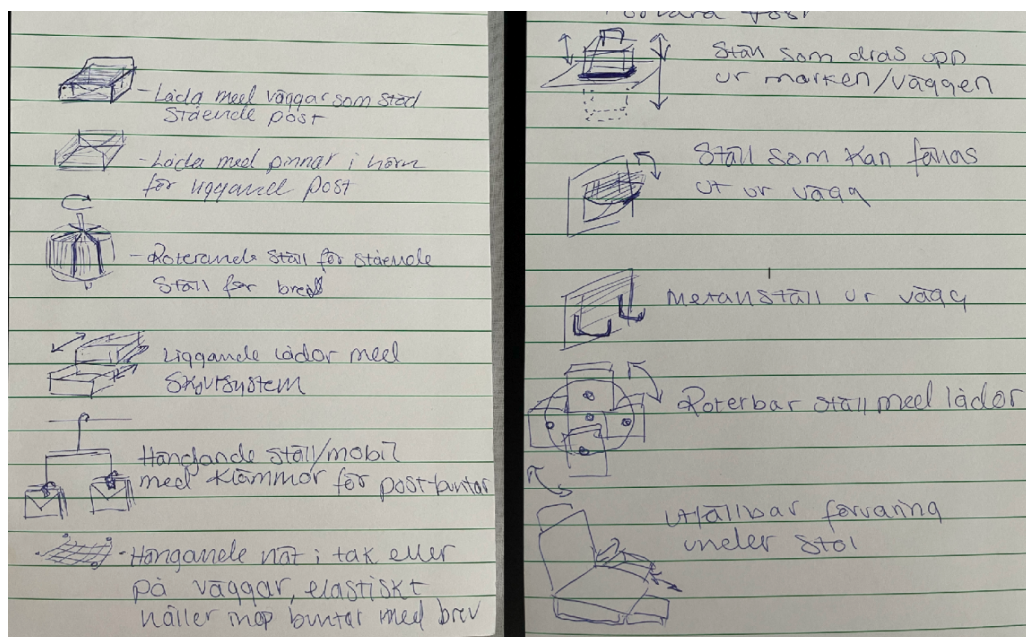 - Låda med väggar som stöd
stående post
- Låda med pinnar i hörn
för liggand post
- Roterande ställ för stående
ställ för brev
Liggande lådor med
skjutsystem
Hängande ställ/mobil
med klämmor för postbuntar
- Hängande nät i tak eller
på väggar, elastiskt
håller ihop buntar med brev
Förvara post
Ställ som dras upp
ur marken/väggen
Ställ som kan fällas
ut ur vägg
Metallställ ur vägg
Roterbar ställ med lådor
Utfällbar förvaring
under stol